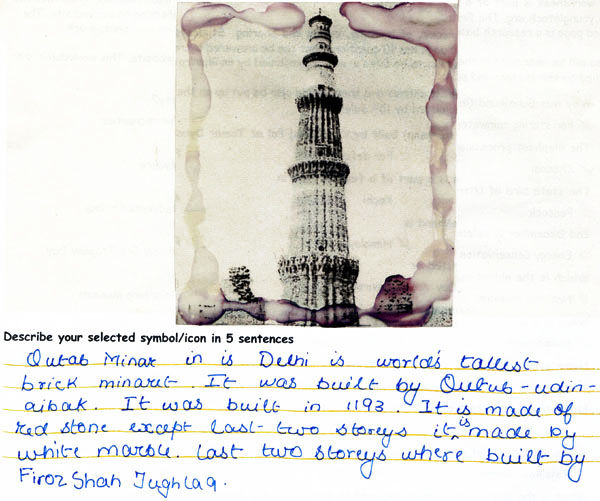 Describe your selected symbol/icon in 5 sentences
Qutab Minar in is Delhi is world's tallest
brick minaret. It was built by Qutub-udin-
aibak. It was built in 1193. It is made of
red stone except last two storeys it is made by
white marble. Last two storeys where built by
Firoz Shah Tughlaq.